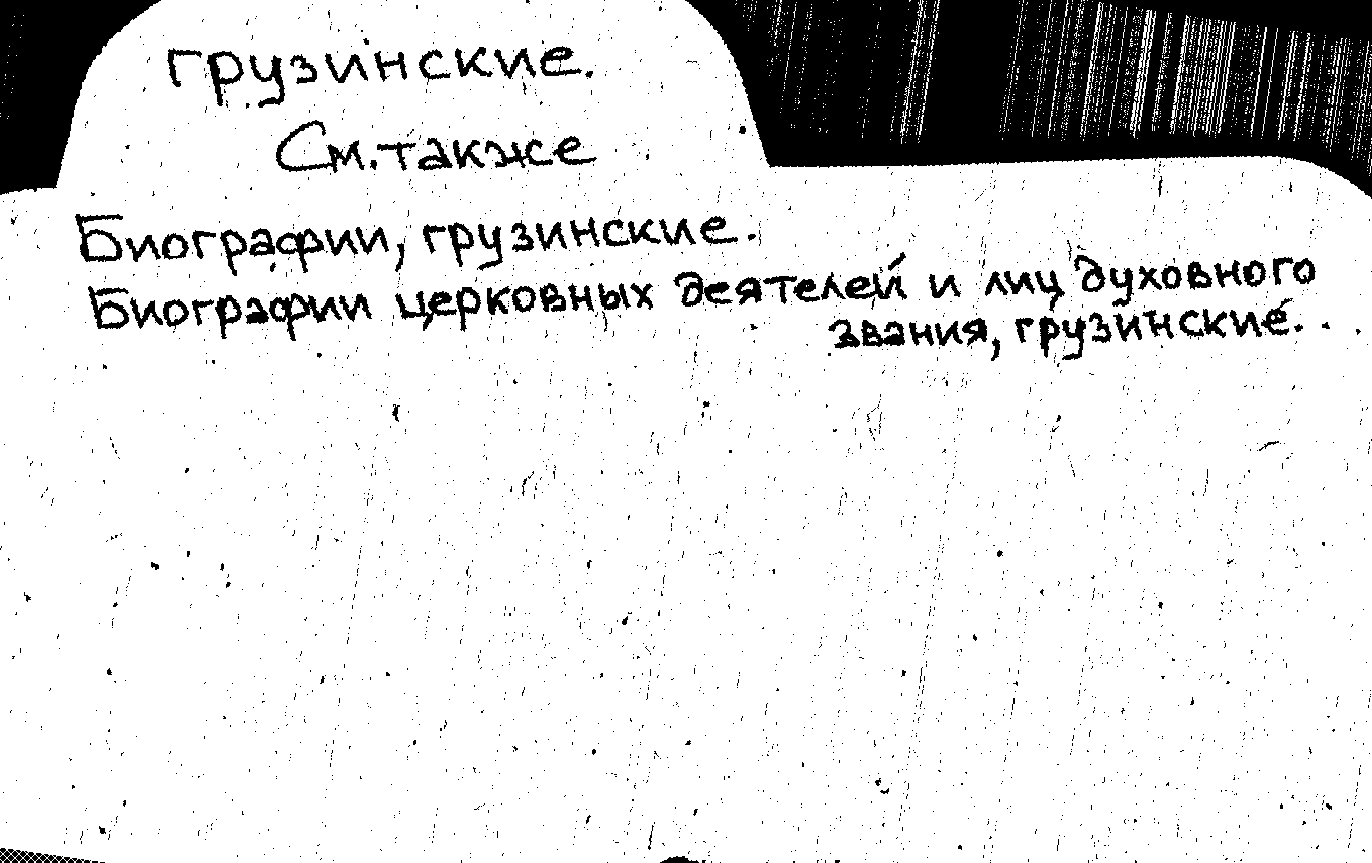 грузинские.
См. также
Биографии, грузинские.
Биографии церковных деятелей и лиц духовного
звания, грузинские.